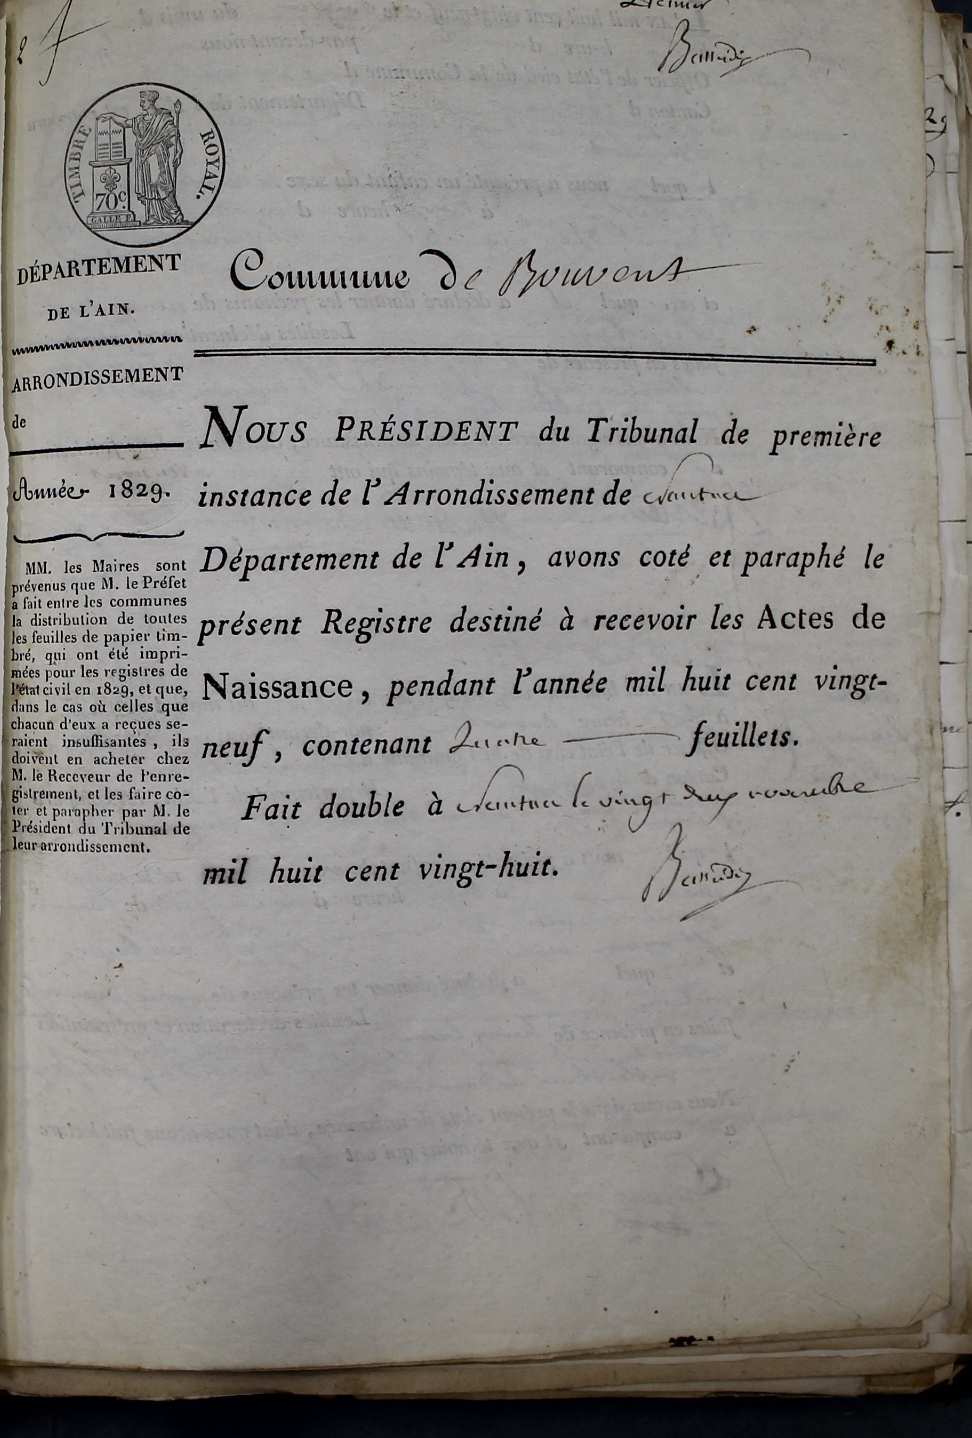 2
Premier
TIMBRE ROYAL.
70c.
GALLE F.
DÉPARTEMENT
DE L'AIN.
ARRONDISSEMENT
de
Année 1829.
MM. les Maires sont
prévenus que M. le Préfet
a fait entre les communes
la distribution de toutes
les feuilles de papier tim-
bré, qui ont été impri-
mées pour les registres de
l'état civil en 1829, et que,
dans le cas où celles que
chacun d'eux a reçues se-
raient insuffisantes, ils
doivent en acheter chez
M. le Receveur de l'enre-
gistrement, et les faire co-
ter et parapher par M. le
Président du Tribunal de
leur arrondissement.
Commune De Bouvent
NOUS PRÉSIDENT du Tribunal de première
instance de l'Arrondissement de Nantua
Département de l'Ain, avons coté et paraphé le
présent Registre destiné à recevoir les Actes de
Naissance, pendant l'année mil huit cent vingt-
neuf, contenant quatre feuillets.
Fait double à Nantua le vingt deux novembre
mil huit cent vingt-huit.